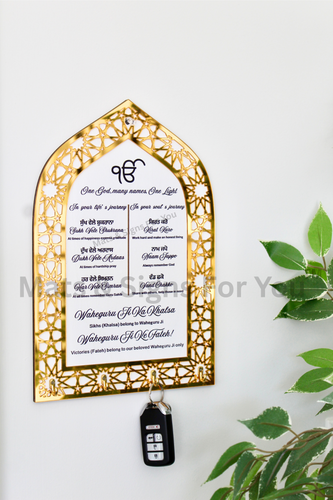 ੴ
One God, many names, One Light
In your life's journey In your soul's journey
ਸੁੱਖ ਵੇਲੇ ਸ਼ੁਕਰਾਨਾ ਕਿਰਤ ਕਰੋ
Sukh Vele Shukrana Kirat Karo
At times of happiness express gratitude Work hard and make an honest living
ਦੁੱਖ ਵੇਲੇ ਅਰਦਾਸ ਨਾਮ ਜਪੋ
Dukh Vele Ardaas Naam Jappo
At times of hardship pray Always remember God
ਹਰ ਵੇਲੇ ਸਿਮਰਨ ਵੰਡ ਛਕੋ
Har Vele Simran Vand Chakko
Waheguru Ji Ka Khalsa
Sikhs (Khalsa) belong to Waheguru
Waheguru Ji Ke Fateh!
Victories (Fateh) belong to our beloved Waheguru Ji only
Signs For You